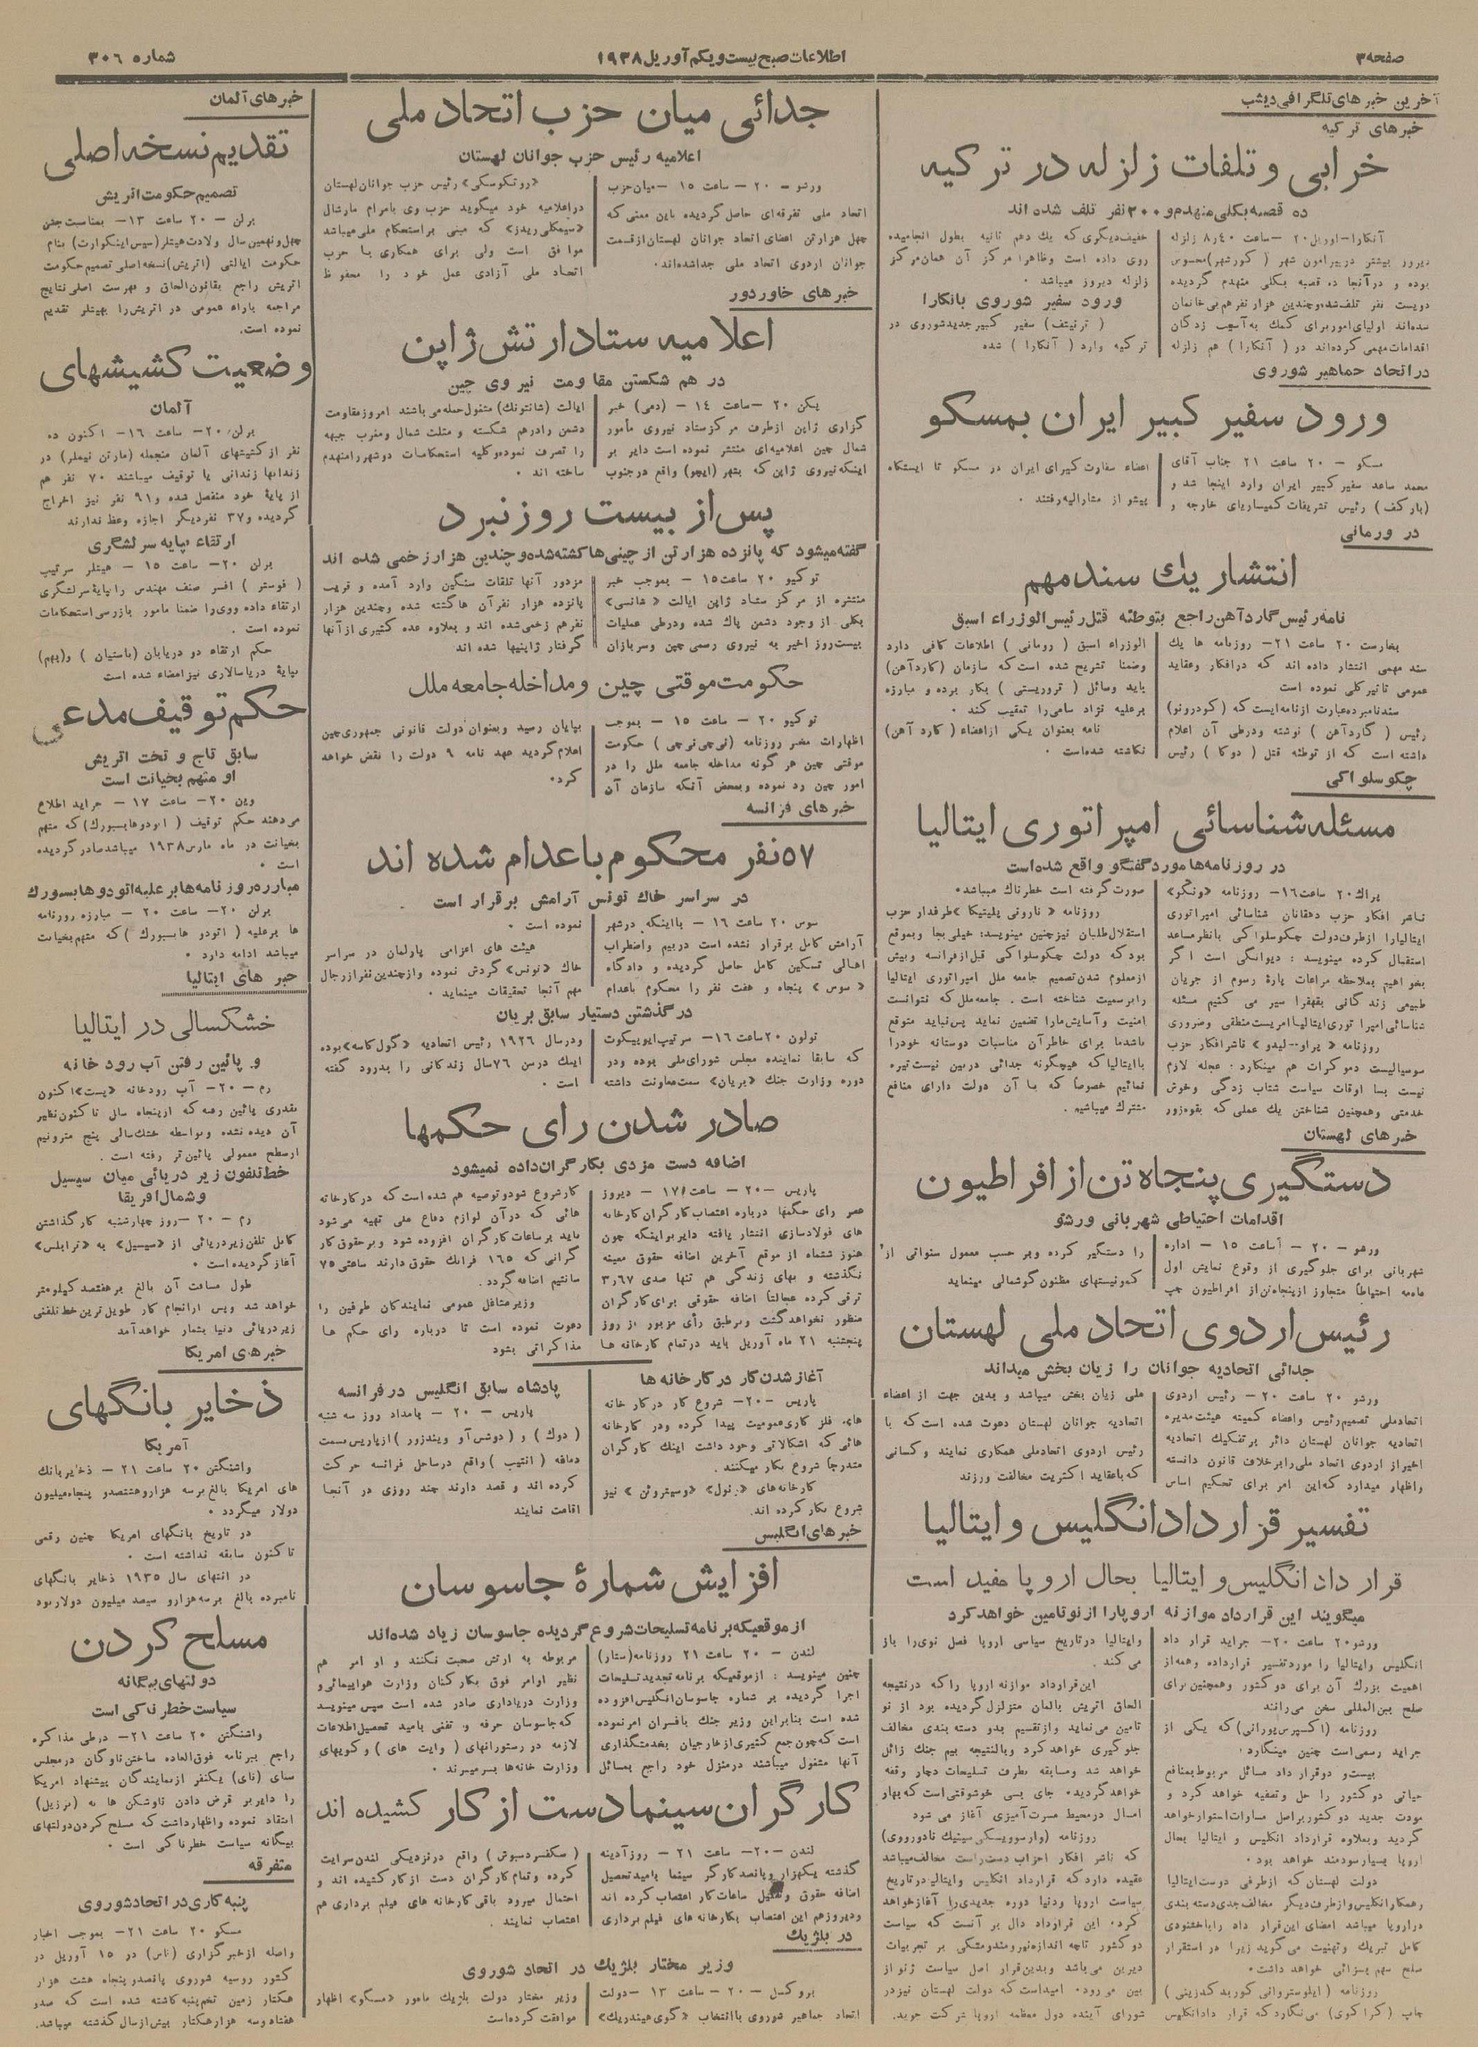 صفحه ۳
اطلاعات صبح بیست و یکم آوریل ۱۹۳۸
شماره ۳۰۶
آخرین خبرهای تلگرافی دیشب
خبرهای ترکیه
خرابی و تلفات زلزله در ترکیه
ده قصبه بکلی منهدم و ۲۰۰ نفر تلف شده اند
آنکارا – اوریل ۲۰ – ساعت ۸ر۴۰ زلزله
دیروز بیشتر در پیرامون شهر ( کورشهر) محسوس
بوده و در آنجا ده قصبه بکلی منهدم گردیده
دویست نفر تلف شده و چندین هزار نفر هم بی خانمان
شده اند اولیای امور برای کمک به آسیب زدگان
اقدامات مهمی کرده اند در ( آنکارا ) هم زلزله
خفیف دیگری که یك دهم ثانیه بطول انجامیده
روی داده است و ظاهرا مرکز آن همان مرکز
زلزله دیروز میباشد .
ورود سفیر شوروی بانکارا
( ترنیتف) سفیر کبیر جدید شوروی در
ترکیه وارد ( آنکارا ) شده
در اتحاد جماهیر شوروی
ورود سفیر کبیر ایران بمسکو
مسکو – ۲۰ ساعت ۲۱ جناب آقای
محمد ساعد سفیر کبیر ایران وارد اینجا شد و
(بارکف) رئیس تشریفات کمیساریای خارجه و
اعضاء سفارت کبرای ایران در مسکو تا ایستگاه
پیشواز مشارالیه رفتند .
در ورمانی
انتشار یك سند مهم
نامه رئیس گارد آهن راجع بتوطئه قتل رئیس الوزراء اسبق
بخارست ۲۰ ساعت ۲۱– روزنامه ها یك
سند مهمی انتشار داده اند که در افکار و عقاید
عمومی تاثیر کلی نموده است
سند نامبرده عبارت از نامه ایست که (کودرونو)
رئیس ( گارد آهن ) نوشته و درطی آن اعلام
داشته است که از توطئه قتل ( دوکا ) رئیس
الوزراء اسبق ( رومانی ) اطلاعات کافی دارد
وضمنا تشریح شده است که سازمان (گارد آهن)
باید وسائل ( تروریستی ) بکار برده و مبارزه
بر علیه نژاد سامی را تعقیب کند .
نامه بعنوان یکی از اعضاء ( گارد آهن)
نگاشته شده است.
چکوسلواکی
مسئله شناسائی امپراتوری ایتالیا
در روزنامه ها مورد گفتگو واقع شده است
پراك ۲۰ ساعت ۱۶– روزنامه «ونکو»
ناشر افکار حزب دهقانان شناسائی امپراتوری
ایتالیا را از طرف دولت چکوسلواکی با نظر مساعد
استقبال کرده مینویسد : دیوانگی است اگر
بخواهیم بملاحظه مراعات پارهٔ رسوم از جریان
طبیعی زندگانی بقهقرا سیر می کنیم مسئله
شناسائی امپراتوری ایتالیا امریست منطقی و ضروری
روزنامه « پراو–لیدو » ناشر افکار حزب
سوسیالیست دموکرات هم مینگارد: عجله لازم
نیست بسا اوقات سیاست شتاب زدگی و خوش
خدمتی و همچنین شناختن یك عملی که بقوه زور
صورت گرفته است خطرناك میباشد.
روزنامه « نارونی پلیتیکا »طرفدار حزب
استقلال طلبان نیز چنین مینویسد: خیلی بجا و بموقع
بود که دولت چکوسلواکی قبل از فرانسه و بیش
از معلوم شدن تصمیم جامعه ملل امپراتوری ایتالیا
را برسمیت شناخته است . جامعه ملل که نتوانست
امنیت و آسایش ما را تضمین نماید پس نباید متوقع
باشد ما برای خاطر آن مناسبات دوستانه خود را
با ایتالیا که هیچگونه جدائی در بین نیست تیره
نمائیم خصوصاً که با آن دولت دارای منافع
مشترك میباشیم.
خبرهای لهستان
دستگیری پنجاه تن از افراطیون
اقدامات احتیاطی شهربانی ورشو
ورشو – ۲۰ – ساعت ۱۵ – اداره
شهربانی برای جلوگیری از وقوع نمایش اول
ماه مه احتیاطاً متجاوز از پنجاه تن از افراطیون چپ
را دستگیر کرده و بر حسب معمول سنواتی از
کمونیستهای مظنون گوشمالی مینماید
رئیس اردوی اتحاد ملی لهستان
جدائی اتحادیه جوانان را زیان بخش میداند
ورشو ۲۰ ساعت ۲۰– رئیس اردوی
اتحاد ملی تصمیم رئیس و اعضاء کمیته هیئت مدیره
اتحادیه جوانان لهستان دائر بر تفکیك اتحادیه
اخیر از اردوی اتحاد ملی را بر خلاف قانون دانسته
و اظهار میدارد که این امر برای تحکیم اساس
ملی زیان بخش میباشد و بدین جهت از اعضاء
اتحادیه جوانان لهستان دعوت شده است که با
رئیس اردوی اتحاد ملی همکاری نمایند و کسانی
که با عقاید اکثریت مخالفت ورزند
تفسیر قرارداد انگلیس و ایتالیا
قرارداد انگلیس و ایتالیا بحال اروپا مفید است
میگویند این قرارداد موازنه اروپا را از نو تامین خواهد کرد
ورشو ۲۰ ساعت ۲۰– جراید قرار داد
انگلیس و ایتالیا را مورد تفسیر قرار داده و همه از
اهمیت بزرگ آن برای دو کشور و همچنین برای
صلح بین المللی سخن میرانند
روزنامه (اکسپرس پورانی) که یکی از
جراید رسمی است چنین مینگارد.
بیست و دو قرار داد مسائل مربوط بمنافع
حیاتی دو کشور را حل و تصفیه خواهد کرد و
مودت جدید دو کشور بر اصل مساوات استوار خواهد
گردید و بعلاوه قرارداد انگلیس و ایتالیا بحال
اروپا بسیار سودمند خواهد بود .
دولت لهستان که از طرفی دوست ایتالیا
و همکار انگلیس و از طرف دیگر مخالف جدی دسته بندی
در اروپا میباشد امضای این قرار داد را با خشنودی
کامل تبریك و تهنیت می گوید زیرا در استقرار
صلح سهم بسزائی خواهد داشت.
روزنامه ( ایلوسترووانی کوریه کدزینی )
چاپ (کراکوی) مینگارد که قرار داد انگلیس
و ایتالیا در تاریخ سیاسی اروپا فصل نوی را باز
می کند .
این قرارداد موازنه اروپا را که در نتیجه
الحاق اتریش بالمان متزلزل گردیده بود از نو
تامین می نماید و از تقسیم بدو دسته بندی مخالف
جلوگیری خواهد کرد و بالنتیجه بیم جنك زائل
خواهد شد و مسابقه بطرف تسلیحات دچار وقفه
خواهد گردید. جای بسی خوشوقتی است که بهار
امسال در محیط مسرت آمیزی آغاز می شود
روزنامه (وارسوویسکی سینیك نادورووی)
که ناشر افکار احزاب دست راست مخالف میباشد
عقیده دارد که قرارداد انگلیس و ایتالیا در تاریخ
سیاست اروپا و دنیا دوره جدیدی را آغاز خواهد
کرد. این قرارداد دال بر آنست که سیاست
دو کشور تاچه اندازه نیرومند و متکی بر تجربیات
دیرین می باشد و بدین قرار اصل سیاست ژنو از
بین میرود. امید است که دولت لهستان نیز در
شورای آینده دول معظمه اروپا شرکت جوید.
جدائی میان حزب اتحاد ملی
اعلامیه رئیس حزب جوانان لهستان
ورشو – ۲۰ – ساعت ۱۵ – میان حزب
اتحاد ملی تفرقه ای حاصل گردیده باین معنی که
چهل هزار تن اعضای اتحاد جوانان لهستان از قسمت
جوانان اردوی اتحاد ملی جدا شده اند.
«روتکوسکی» رئیس حزب جوانان لهستان
در اعلامیه خود میگوید حزب وی با مرام مارشال
«سیمکلی ریدز» که مبنی بر استحکام ملی میباشد
موافق است ولی برای همکاری با حزب
اتحاد ملی آزادی عمل خود را محفوظ
خبرهای خاور دور
اعلامیه ستاد ارتش ژاپن
در هم شکستن مقاومت نیروی چین
پکن ۲۰ – ساعت ۱۴ – (دمی) خبر
گزاری ژاپن از طرف مرکز ستاد نیروی مأمور
شمال چین اعلامیه ای منتشر نموده است دایر بر
اینکه نیروی ژاپن که بشهر (ایچو) واقع در جنوب
ایالت (شانتونك) مشغول حمله می باشند امروز مقاومت
دشمن را درهم شکسته و مثلث شمال و مغرب جبهه
را تصرف نموده و کلیه استحکامات دو شهر را منهدم
ساخته اند .
پس از بیست روز نبرد
گفته میشود که پانزده هزار تن از چینی ها کشته شده و چندین هزار زخمی شده اند
توکیو ۲۰ ساعت ۱۵ – بموجب خبر
منتشره از مرکز ستاد ژاپن ایالت « شانسی»
بکلی از وجود دشمن پاك شده و درطی عملیات
بیست روز اخیر به نیروی رسمی چین و سربازان
مزدور آنها تلفات سنگین وارد آمده و قریب
پانزده هزار نفر آن ها کشته شده و چندین هزار
نفر هم زخمی شده اند و بعلاوه عده کثیری از آنها
گرفتار ژاپنیها شده اند
حکومت موقتی چین و مداخله جامعه ملل
توکیو ۲۰ – ساعت ۱۵ – بموجب
اظهارات مخبر روزنامه (نی چی نی چی ) حکومت
موقتی چین هر گونه مداخله جامعه ملل را در
امور چین رد نموده و بمحض آنکه سازمان آن
بپایان رسید و بعنوان دولت قانونی جمهوری چین
اعلام گردید عهد نامه ۹ دولت را نقض خواهد
کرد.
خبرهای فرانسه
۵۷ نفر محکوم باعدام شده اند
در سراسر خاك تونس آرامش برقرار است .
سوس ۲۰ ساعت ۱۶ – با اینکه در شهر
آرامش کامل برقرار نشده است در بیم و اضطراب
اهالی تسکین کامل حاصل گردیده و دادگاه
« سوس » پنجاه و هفت نفر را محکوم باعدام
نموده است .
هیئت های اعزامی پارلمان در سراسر
خاك «تونس» گردش نموده و از چندین نفر از رجال
مهم آنجا تحقیقات مینماید .
در گذشتن دستیار سابق بریان
تولون ۲۰ ساعت ۱۶– سرتیپ ایوییکوت
که سابقا نماینده مجلس شورای ملی بوده و در
دوره وزارت جنك «بریان» سمت معاونت داشته
و در سال ۱۹۲۶ رئیس اتحادیه «گول کاسه» بوده
اینك در سن ۷۶ سال زندگانی را بدرود گفته
است .
صادر شدن رای حکمها
اضافه دست مزدی بکارگران داده نمیشود
پاریس – ۲۰ – ساعت ۱۷ – دیروز
عصر رای حکمها درباره اعتصاب کارگران کارخانه
های فولاد سازی انتشار یافته دایر بر اینکه چون
هنوز ششماه از موقع آخرین اضافه حقوق معینه
نگذشته و بهای زندگی هم تنها صدی ۳ر۶۷
ترقی کرده عجالتاً اضافه حقوقی برای کارگران
منظور نخواهد گشت و بر طبق رأی مزبور از روز
پنجشنبه ۲۱ ماه آوریل باید در تمام کارخانه ها
کار شروع شود و توصیه هم شده است که در کارخانه
هائی که در آن لوازم دفاع ملی تهیه می شود
باید بر ساعات کارگران افزوده شود و بر حقوق کار
گرانی که ۱۶۵ فرانك حقوق دارند ساعتی ۷۵
سانتیم اضافه گردد .
وزیر مشاغل عمومی نمایندگان طرفین را
دعوت نموده است تا درباره رای حکم ها
مذاکراتی بشود
آغاز شدن کار در کارخانه ها
پاریس – ۲۰– شروع کار در کار خانه
های فلز کاری عمومیت پیدا کرده و در کارخانه
هائی که اشکالاتی وجود داشت اینك کارگران
متدرجا شروع بکار میکنند .
کارخانه های «رنول» «وسیتروئن » نیز
شروع بکار کرده اند.
پادشاه سابق انگلیس در فرانسه
پاریس – ۲۰ – بامداد روز سه شنبه
( دوك ) و ( دوشس آو ویندزور ) از پاریس بسمت
دماغه ( انتیب ) واقع در ساحل فرانسه حرکت
کرده اند و قصد دارند چند روزی در آنجا
اقامت نمایند
خبرهای انگلیس
افزایش شمارهٔ جاسوسان
از موقعیکه برنامه تسلیحات شروع گردیده جاسوسان زیاد شده اند
لندن – ۲۰ ساعت ۲۱ روزنامه (ستار)
چنین مینویسد : از موقعیکه برنامه تجدید تسلیحات
اجرا گردیده بر شماره جاسوسان انگلیس افزوده
شده است بنابراین وزیر جنك بافسران امر نموده
است که چون جمع کثیری از خارجیان بخدمتگذاری
آنها مشغول میباشند در منزل خود راجع بمسائل
مربوطه به ارتش صحبت نکنند و او امر هم
نظیر اوامر فوق بکارکنان وزارت هواپیمائی و
وزارت دریاداری صادر شده است سپس مینویسد
که جاسوسان حرفه و تفننی بامید تحصیل اطلاعات
لازمه در رستورانهای ( وایت های ) و کویهای
وزارت خانه ها بسر میبرند .
کارگران سینما دست از کار کشیده اند
لندن –۲۰– ساعت ۲۱ – روز آدینه
گذشته یکهزار و پانصد کارگر سینما بامید تحصیل
اضافه حقوق و تقلیل ساعات کار اعتصاب کرده اند
و دیروز هم این اعتصاب بکارخانه های فیلم برداری
( سکفرد سبوش ) واقع در نزدیکی لندن سرایت
کرده و تمام کارگران دست از کار کشیده اند و
احتمال میرود باقی کارخانه های فیلم برداری هم
اعتصاب نمایند .
در بلژیك
وزیر مختار بلژیك در اتحاد شوروی
بروکسل – ۲۰ – ساعت ۱۳ –دولت
اتحاد جماهیر شوروی با انتخاب «گوی هیندریك»
وزیر مختار دولت بلژیك مامور «مسکو» اظهار
موافقت کرده است
خبرهای آلمان
تقدیم نسخه اصلی
تصمیم حکومت اتریش
برلن – ۲۰ ساعت ۱۳– بمناسبت جشن
چهل و نهمین سال ولادت هیتلر (سیس اینکوارت) بنام
حکومت ایالتی (اتریش) نسخه اصلی تصمیم حکومت
اتریش راجع بقانون الحاق و فهرست اصلی نتایج
مراجعه بآراء عمومی در اتریش را بهیتلر تقدیم
نموده است.
وضعیت کشیشهای
آلمان
برلن ۲۰– ساعت ۱۶– اکنون ده
نفر از کشیشهای آلمان منجمله (مارتن نیملر) در
زندانها زندانی یا توقیف میباشند ۷۰ نفر هم
از پایهٔ خود منفصل شده و ۹۱ نفر نیز اخراج
گردیده و ۳۷ نفر دیگر اجازه وعظ ندارند
ارتقاء بپایه سرلشگری
برلن ۲۰– ساعت ۱۵ – هیتلر سرتیپ
( فوستر ) افسر صنف مهندس را بپایهٔ سرلشگری
ارتقاء داده ووی را ضمنا مامور بازرسی استحکامات
نموده است .
حکم ارتقاء دو دریابان (باستیان ) و (بهم)
بپایهٔ دریاسالاری نیز امضاء شده است
حکم توقیف مدعی
سابق تاج و تخت اتریش
او متهم بخیانت است
وین ۲۰– ساعت ۱۷ – جراید اطلاع
می دهند حکم توقیف ( اتودو هابسبورك) که متهم
بخیانت در ماه مارس ۱۹۳۸ میباشد صادر گردیده
است .
مبارزه روزنامه ها بر علیه اتودو هابسبورك
برلن ۲۰– ساعت ۲۰ – مبارزه روزنامه
ها بر علیه ( اتودو هابسبورك ) که متهم بخیانت
میباشد ادامه دارد .
خبر های ایتالیا
خشکسالی در ایتالیا
و پائین رفتن آب رودخانه
رم – ۲۰– آب رودخانه «پست» اکنون
بقدری پائین رفته که از پنجاه سال تاکنون نظیر
آن دیده نشده و بواسطه خشکسالی پنج متر و نیم
از سطح معمولی پائین تر رفته است .
خط تلفون زیر دریائی میان سیسیل
و شمال افریقا
رم – ۲۰ –روز چهارشنبه کار گذاشتن
کابل تلفن زیر دریائی از «سیسیل» به «ترابلس»
آغاز گردیده است .
طول مسافت آن بالغ بر هفتصد کیلومتر
خواهد شد و پس از انجام کار طویل ترین خط تلفنی
زیر دریائی دنیا بشمار خواهد آمد
خبرهای امریکا
ذخایر بانگهای
آمریکا
واشنگتن ۲۰ ساعت ۲۱ – ذخایر بانك
های امریکا بالغ بر سه هزار و هشتصد و پنجاه میلیون
دولار میگردد .
در تاریخ بانگهای امریکا چنین رقمی
تاکنون سابقه نداشته است .
در انتهای سال ۱۹۳۵ ذخایر بانگهای
نامبرده بالغ بر سه هزار و سیصد میلیون دولار بود
مسلح کردن
دولتهای بیگانه
سیاست خطرناکی است
واشنگتن ۲۰ ساعت ۲۱– درطی مذاکره
راجع ببرنامه فوق العاده ساختن ناوگان در مجلس
سنای (نای) یکنفر از نمایندگان پیشنهاد امریکا
را دایر بر قرض دادن ناوشکن ها به (برزیل)
انتقاد نموده و اظهار داشت که مسلح کردن دولتهای
بیگانه سیاست خطرناکی است .
متفرقه
پنبه کاری در اتحاد شوروی
مسکو ۲۰ ساعت ۲۱– بموجب اخبار
واصله از خبرگزاری (تاس) در ۱۵ آوریل در
کشور روسیه شوروی پانصد و پنجاه هشت هزار
هکتار زمین تخم پنبه کاشته شده است که صد و
هفتاد و سه هزار هکتار بیش از سال گذشته میباشد.